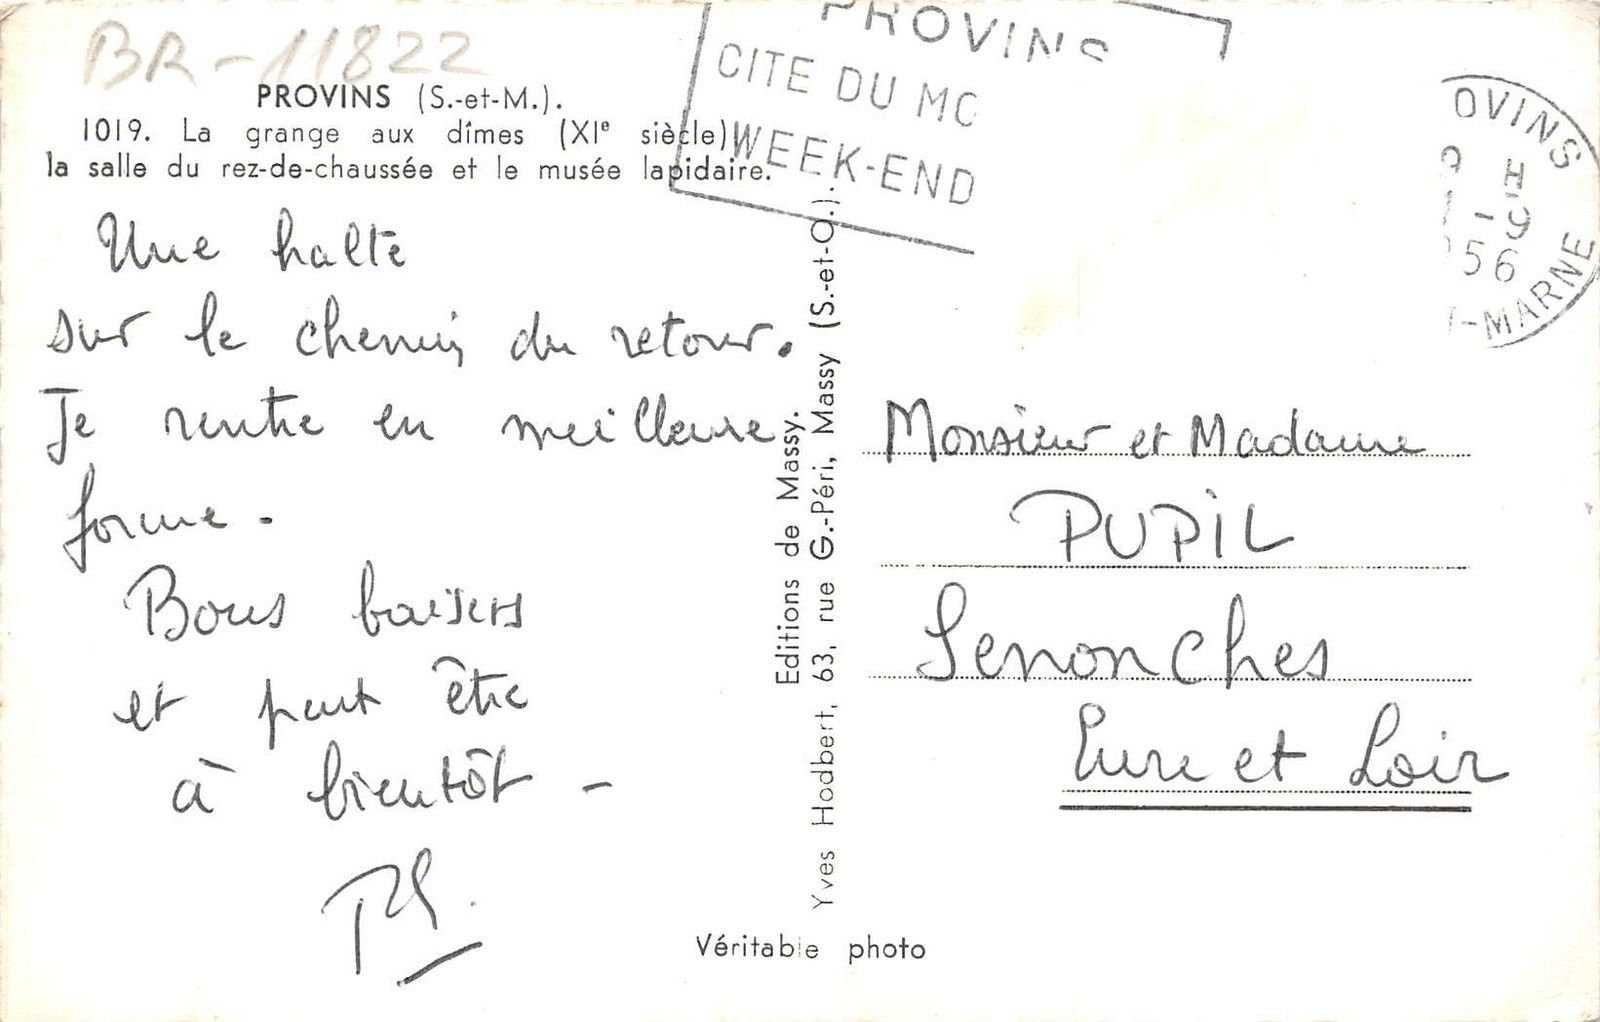 BR-11822
PROVINS (S.-et-M.).
1019. La grange aux dîmes (XIe siècle)
la salle du rez-de-chaussée et le musée lapidaire.
Une halte
sur le chemin du retour.
Je rentre en meilleure
forme.
Bons baisers
et peut être
à bientôt -
PROVINS
CITE DU MO
WEEK-END
OVINS
9 H
1 -9
56
-MARNE
Editions de Massy.
Yves Hodbert, 63, rue G.-Péri, Massy (S.-et-O.).
Monsieur et Madame
PUPIL
Senonches
Eure et Loir
Véritable photo